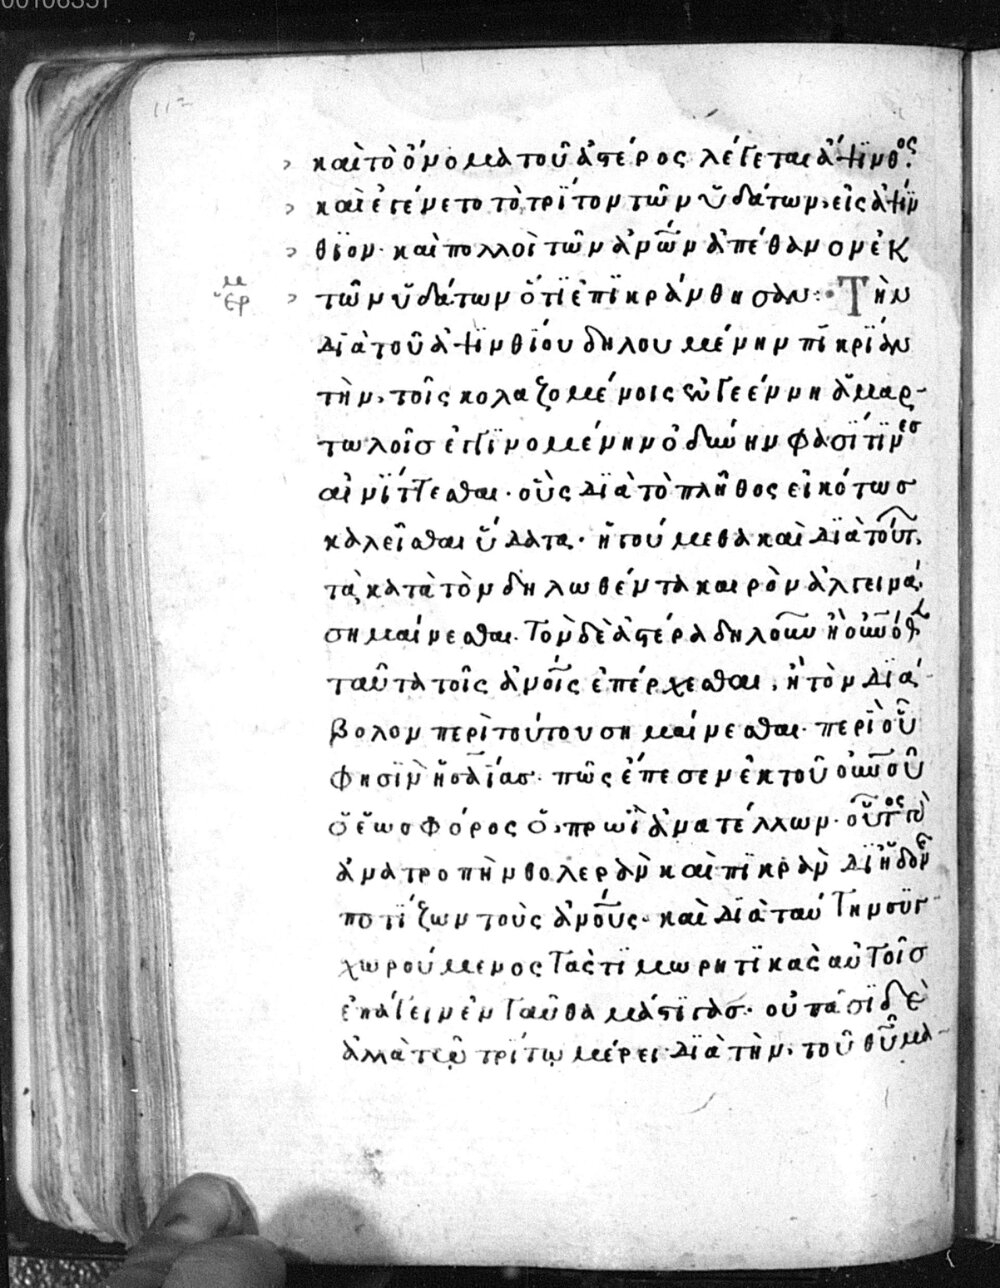 00106351
112
καὶ τὸ ὄνομα τοῦ ἀστέρος λέγεται ἄψινθος.
καὶ ἐγένετο τὸ τρίτον τῶν ὑδάτων, εἰς ἀψίν
θιον· καὶ πολλοὶ τῶν ἀνων ἀπέθανον ἐκ
ἑρμ τῶν ὑδάτων ὅτι ἐπικράνθησαν :· Τὴν
διὰ τοῦ ἀψινθίου δηλουμένην πικρίαν
τὴν, τοῖς κολαζομένοις ἐν γεέννη ἁμαρ-
τωλοῖς ἐγγινομένην ὀδύνην φασί τινες
αἰνίττεσθαι· οὓς διὰ τὸ πλῆθος εἰκότως
καλεῖσθαι ὕδατα· ἡγούμεθα καὶ διὰ τούτ
τὰ κατὰ τὸν δηλωθέντα καιρὸν ἀλγεινά
σημαίνεσθαι. Τὸν δὲ ἀστέρα δηλοῦν ἢ οὐνόθ
ταῦτα τοῖς ἀνοις ἐπέρχεσθαι, ἢ τὸν διά-
βολον περὶ τούτου σημαίνεσθαι· περὶ οὗ
φησὶν ἡσαΐας· πῶς ἐπεσεν ἐκ τοῦ οὐνοῦ
ὁ ἑωσφόρος ὁ, πρωῒ ἀνατέλλων· οὗτος
ἀνατροπὴν θολερὰν καὶ πικρὰν δι' ἡδον
ποτίζων τοὺς ἀνους· καὶ διὰ ταύτην συγ-
χωρούμενος τὰς τιμωρητικὰς αὐτοῖς
ἐπάγειν ἐνταῦθα μάστιγας· οὐ πᾶσι δὲ
ἀλλὰ τῶ τρίτω μέρει διὰ τὴν, τοῦ θυ μα-